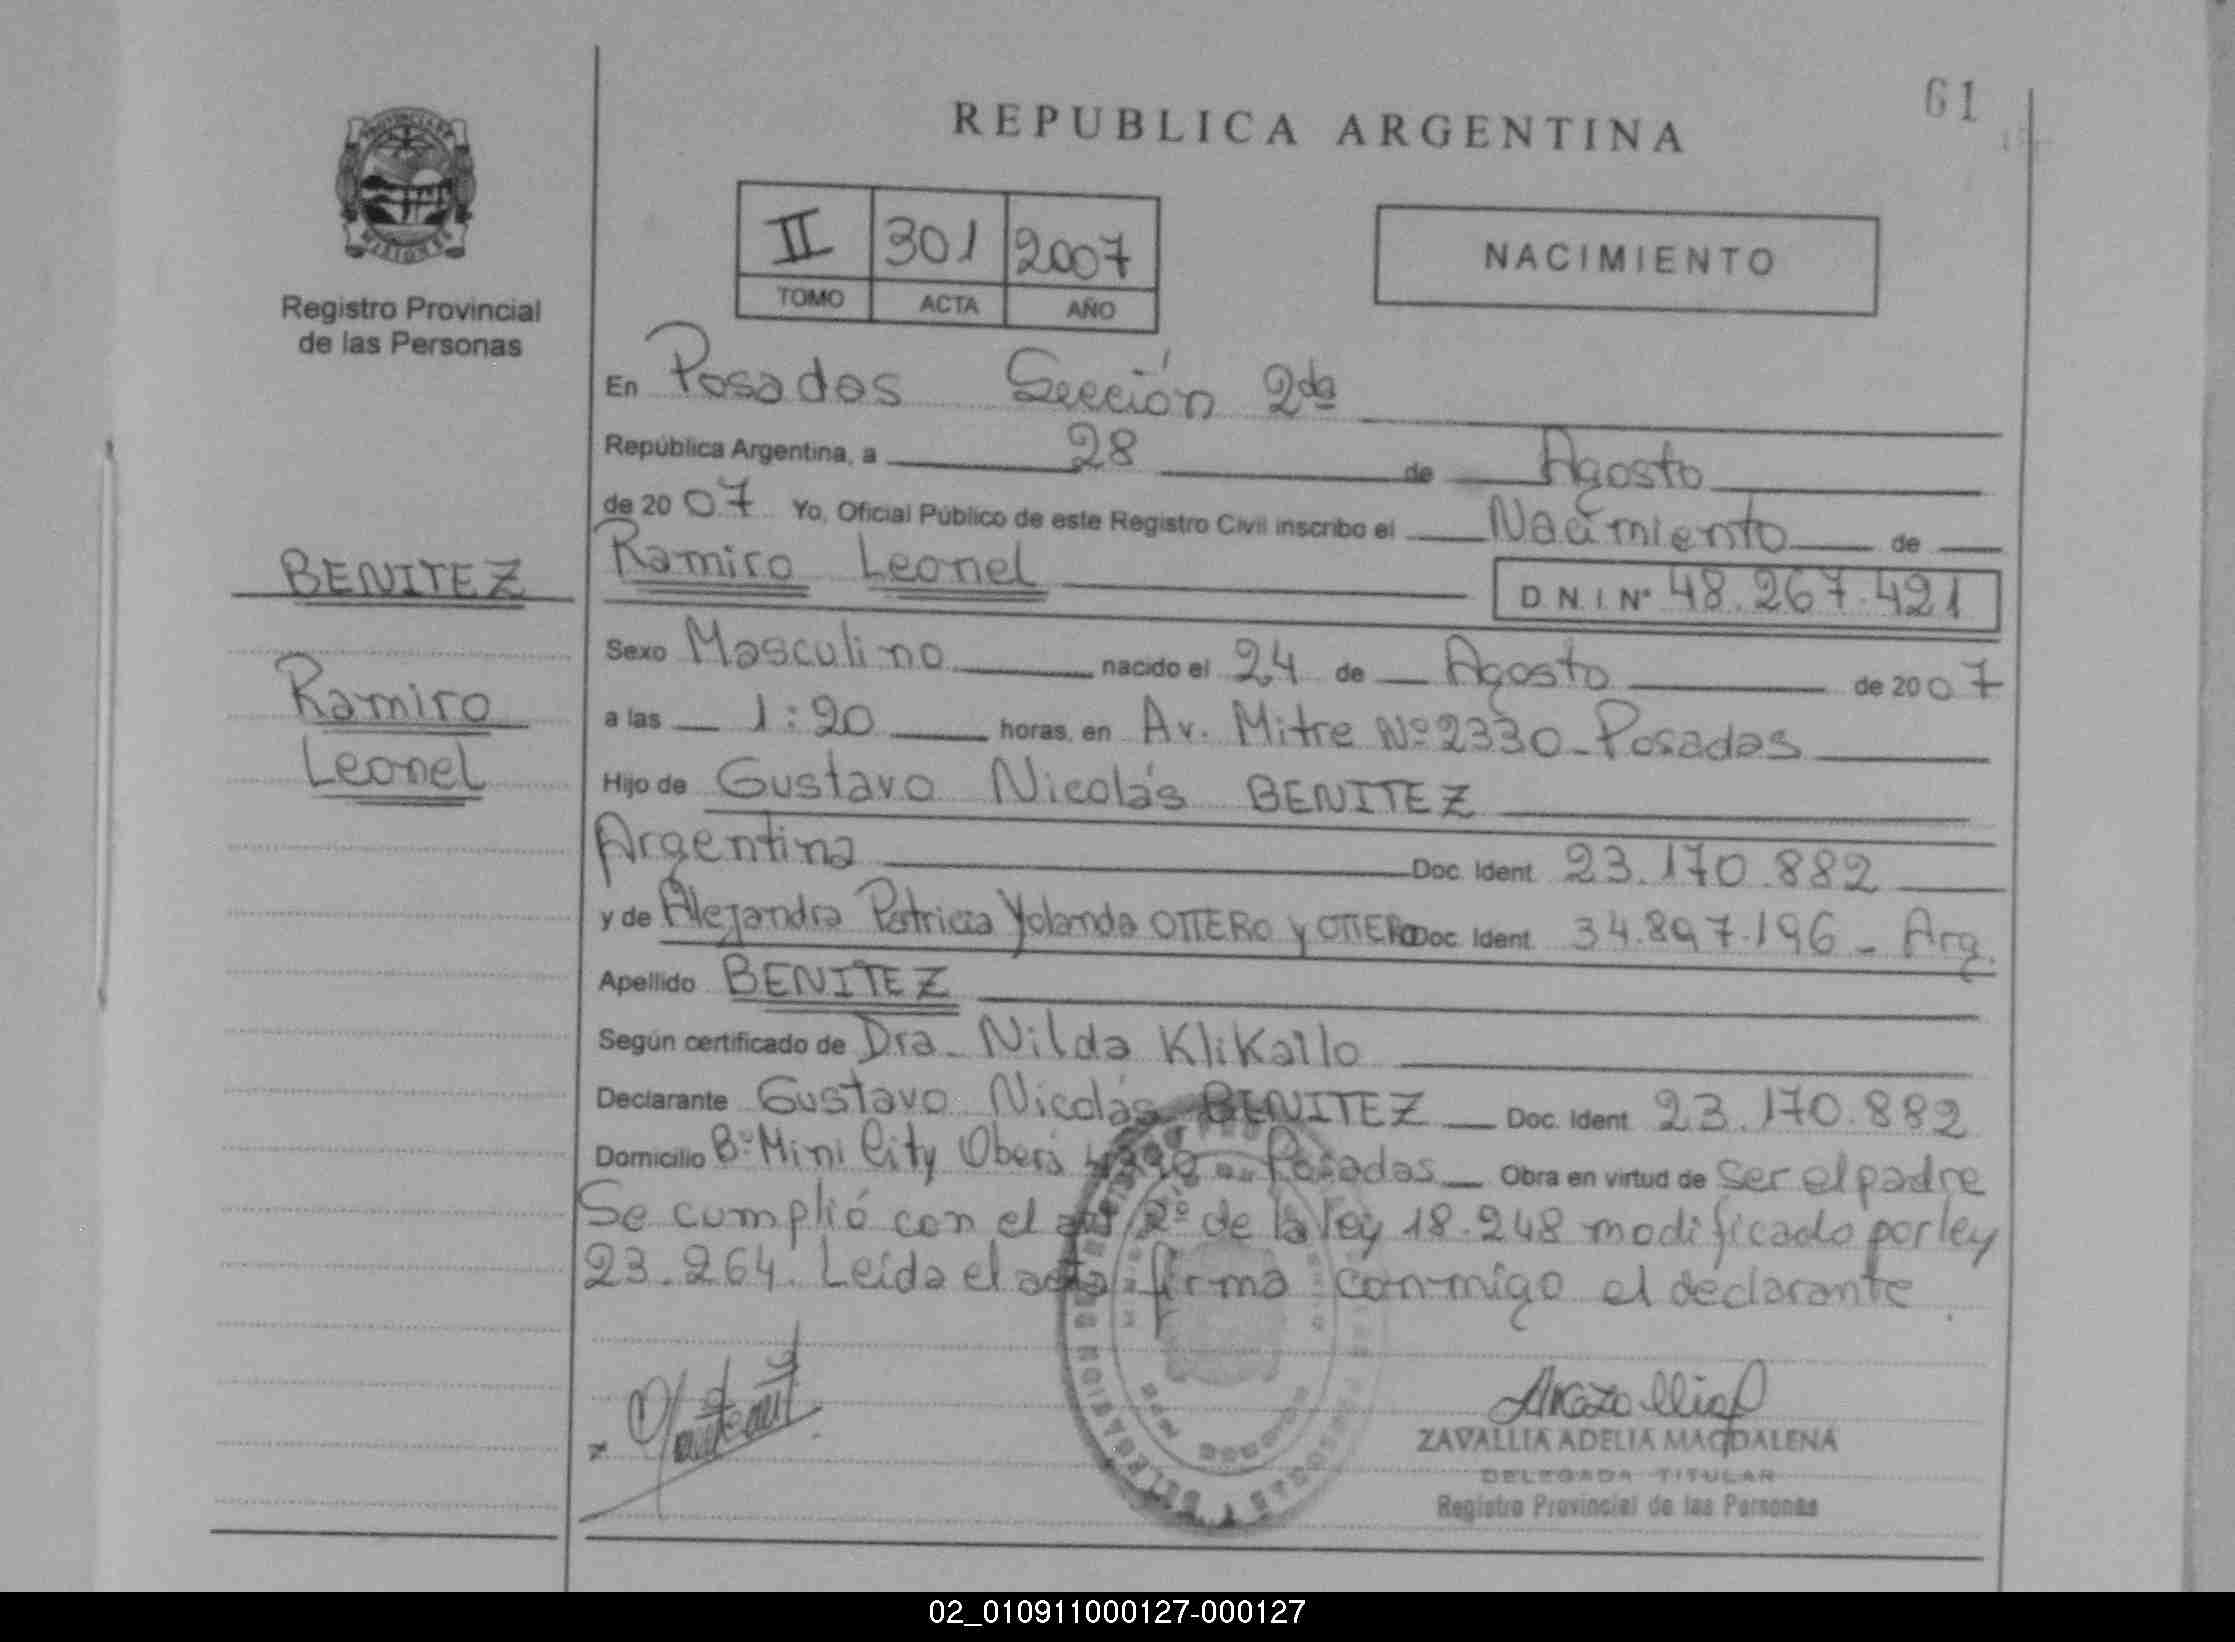 61
REPUBLICA ARGENTINA
PROVINCIA DE
MISIONES
Registro Provincial
de las Personas
II 301 2007
TOMO ACTA AÑO
NACIMIENTO
En Posadas Sección 2da
República Argentina, a 28 de Agosto
de 2007 Yo, Oficial Público de este Registro Civil inscribo el Nacimiento de
BENITEZ
Ramiro
Leonel
Ramiro Leonel D.N.I. Nº 48.267.421
Sexo Masculino nacido el 24 de Agosto de 2007
a las 1:20 horas, en Av. Mitre Nº 2330 - Posadas
Hijo de Gustavo Nicolás BENITEZ
Argentina Doc. Ident. 23.170.882
y de Alejandra Patricia Yolanda OTTERO y OTTERO Doc. Ident. 34.897.196 - Arg.
Apellido BENITEZ
Según certificado de Dra. Nilda Klikailo
Declarante Gustavo Nicolás BENITEZ Doc. Ident. 23.170.882
Domicilio Bº Mini City Oberá - Posadas Obra en virtud de ser el padre
Se cumplió con el art 2º de la ley 18.248 modificado por ley
23.264. Leída el acta firma conmigo el declarante.
ZAVALLIA ADELIA MAGDALENA
DELEGADA TITULAR
Registro Provincial de las Personas
02_010911000127-000127